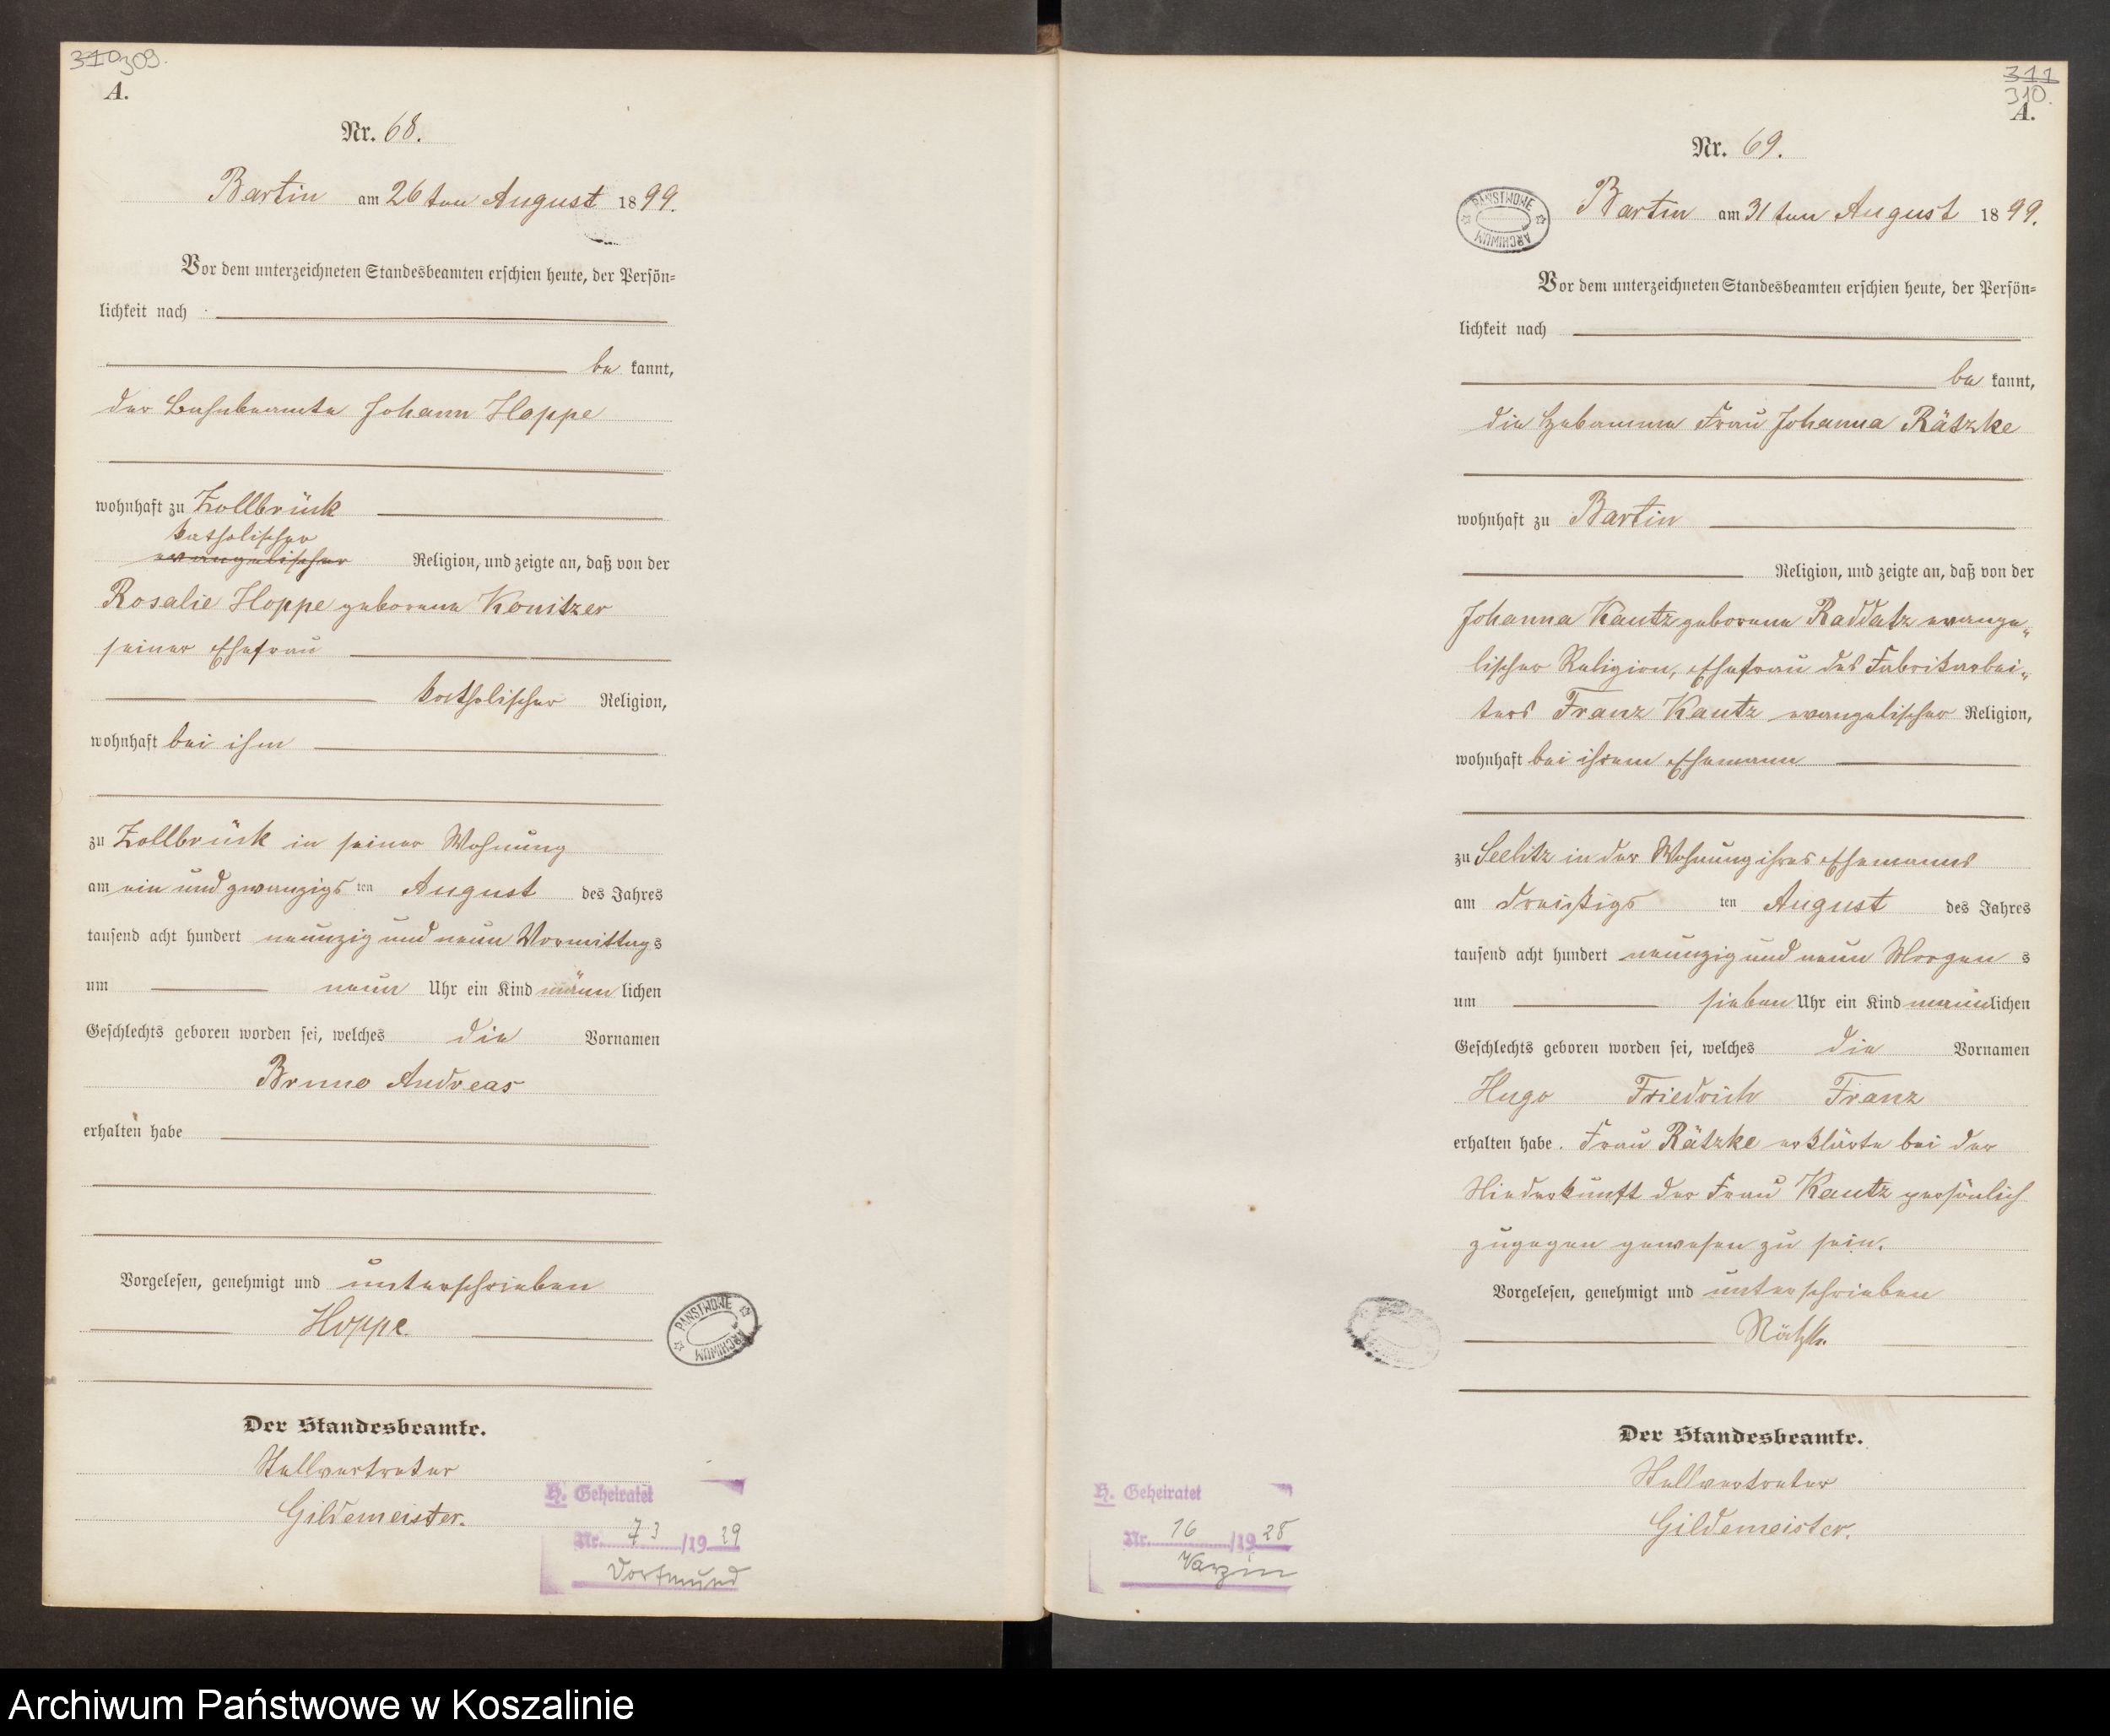 310 309.
A.
Nr. 68.
Bartin am 26 ten August 1899.
Vor dem unterzeichneten Standesbeamten erschien heute, der Persön=
lichkeit nach
be kannt,
der Bahnbeamte Johann Hoppe
wohnhaft zu Zollbrück
katholischer
evangelischer Religion, und zeigte an, daß von der
Rosalie Hoppe geborene Konitzer
seiner Ehefrau
katholischer Religion,
wohnhaft bei ihm
zu Zollbrück in seiner Wohnung
am ein und zwanzigs ten August des Jahres
tausend acht hundert neunzig und neun Vormittags
um neun Uhr ein Kind männ lichen
Geschlechts geboren worden sei, welches die Vornamen
Bruno Andreas
erhalten habe
Vorgelesen, genehmigt und unterschrieben
Hoppe
PANSTWOWE ARCHIWUM
Der Standesbeamte.
Stellvertreter
Gildemeister.
H. Geheiratet
Nr. 73 /1929
Dortmund
311
310.
A.
Nr. 69.
PANSTWOWE ARCHIWUM
Bartin am 31 ten August 1899.
Vor dem unterzeichneten Standesbeamten erschien heute, der Persön=
lichkeit nach
be kannt,
die Hebamme Frau Johanna Rätzke
wohnhaft zu Bartin
Religion, und zeigte an, daß von der
Johanna Kautz geborene Raddatz evange„
lischer Religion, Ehefrau des Fabrikarbei„
ters Franz Kautz evangelischer Religion,
wohnhaft bei ihrem Ehemann
zu Seelitz in der Wohnung ihres Ehemanns
am dreißigs ten August des Jahres
tausend acht hundert neunzig und neun Morgen s
um sieben Uhr ein Kind männlichen
Geschlechts geboren worden sei, welches die Vornamen
Hugo Friedrich Franz
erhalten habe. Frau Rätzke erklärte bei der
Niederkunft der Frau Kautz persönlich
zugegen gewesen zu sein.
Vorgelesen, genehmigt und unterschrieben
Rätzke
Der Standesbeamte.
Stellvertreter
Gildemeister.
H. Geheiratet
Nr. 16 /1928
Varzin
Archiwum Państwowe w Koszalinie